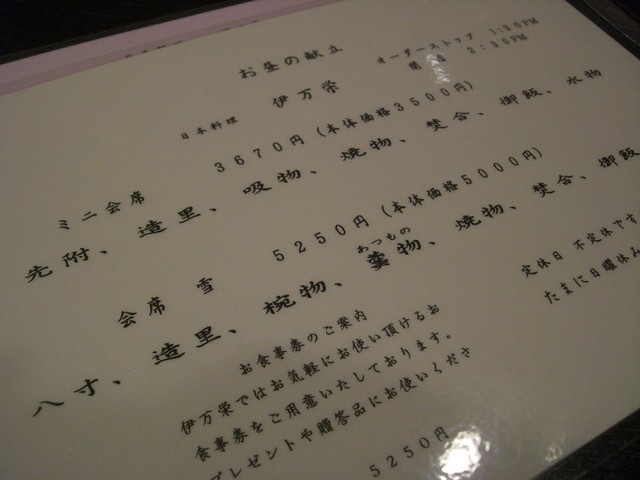 お昼の献立
オーダーストップ 1:30PM
閉店 2:30PM
日本料理 伊万栄
ミニ会席 3670円(本体価格3500円)
先附、造里、吸物、焼物、焚合、御飯、水物
会席 雪 5250円(本体価格5000円)
あつもの
八寸、造里、椀物、羹物、焼物、焚合、御飯
お食事券のご案内
伊万栄ではお気軽にお使い頂けるお
食事券をご用意いたしております。
プレゼントや贈答品にお使いくださ
5250円
定休日 不定休です
たまに日曜休み